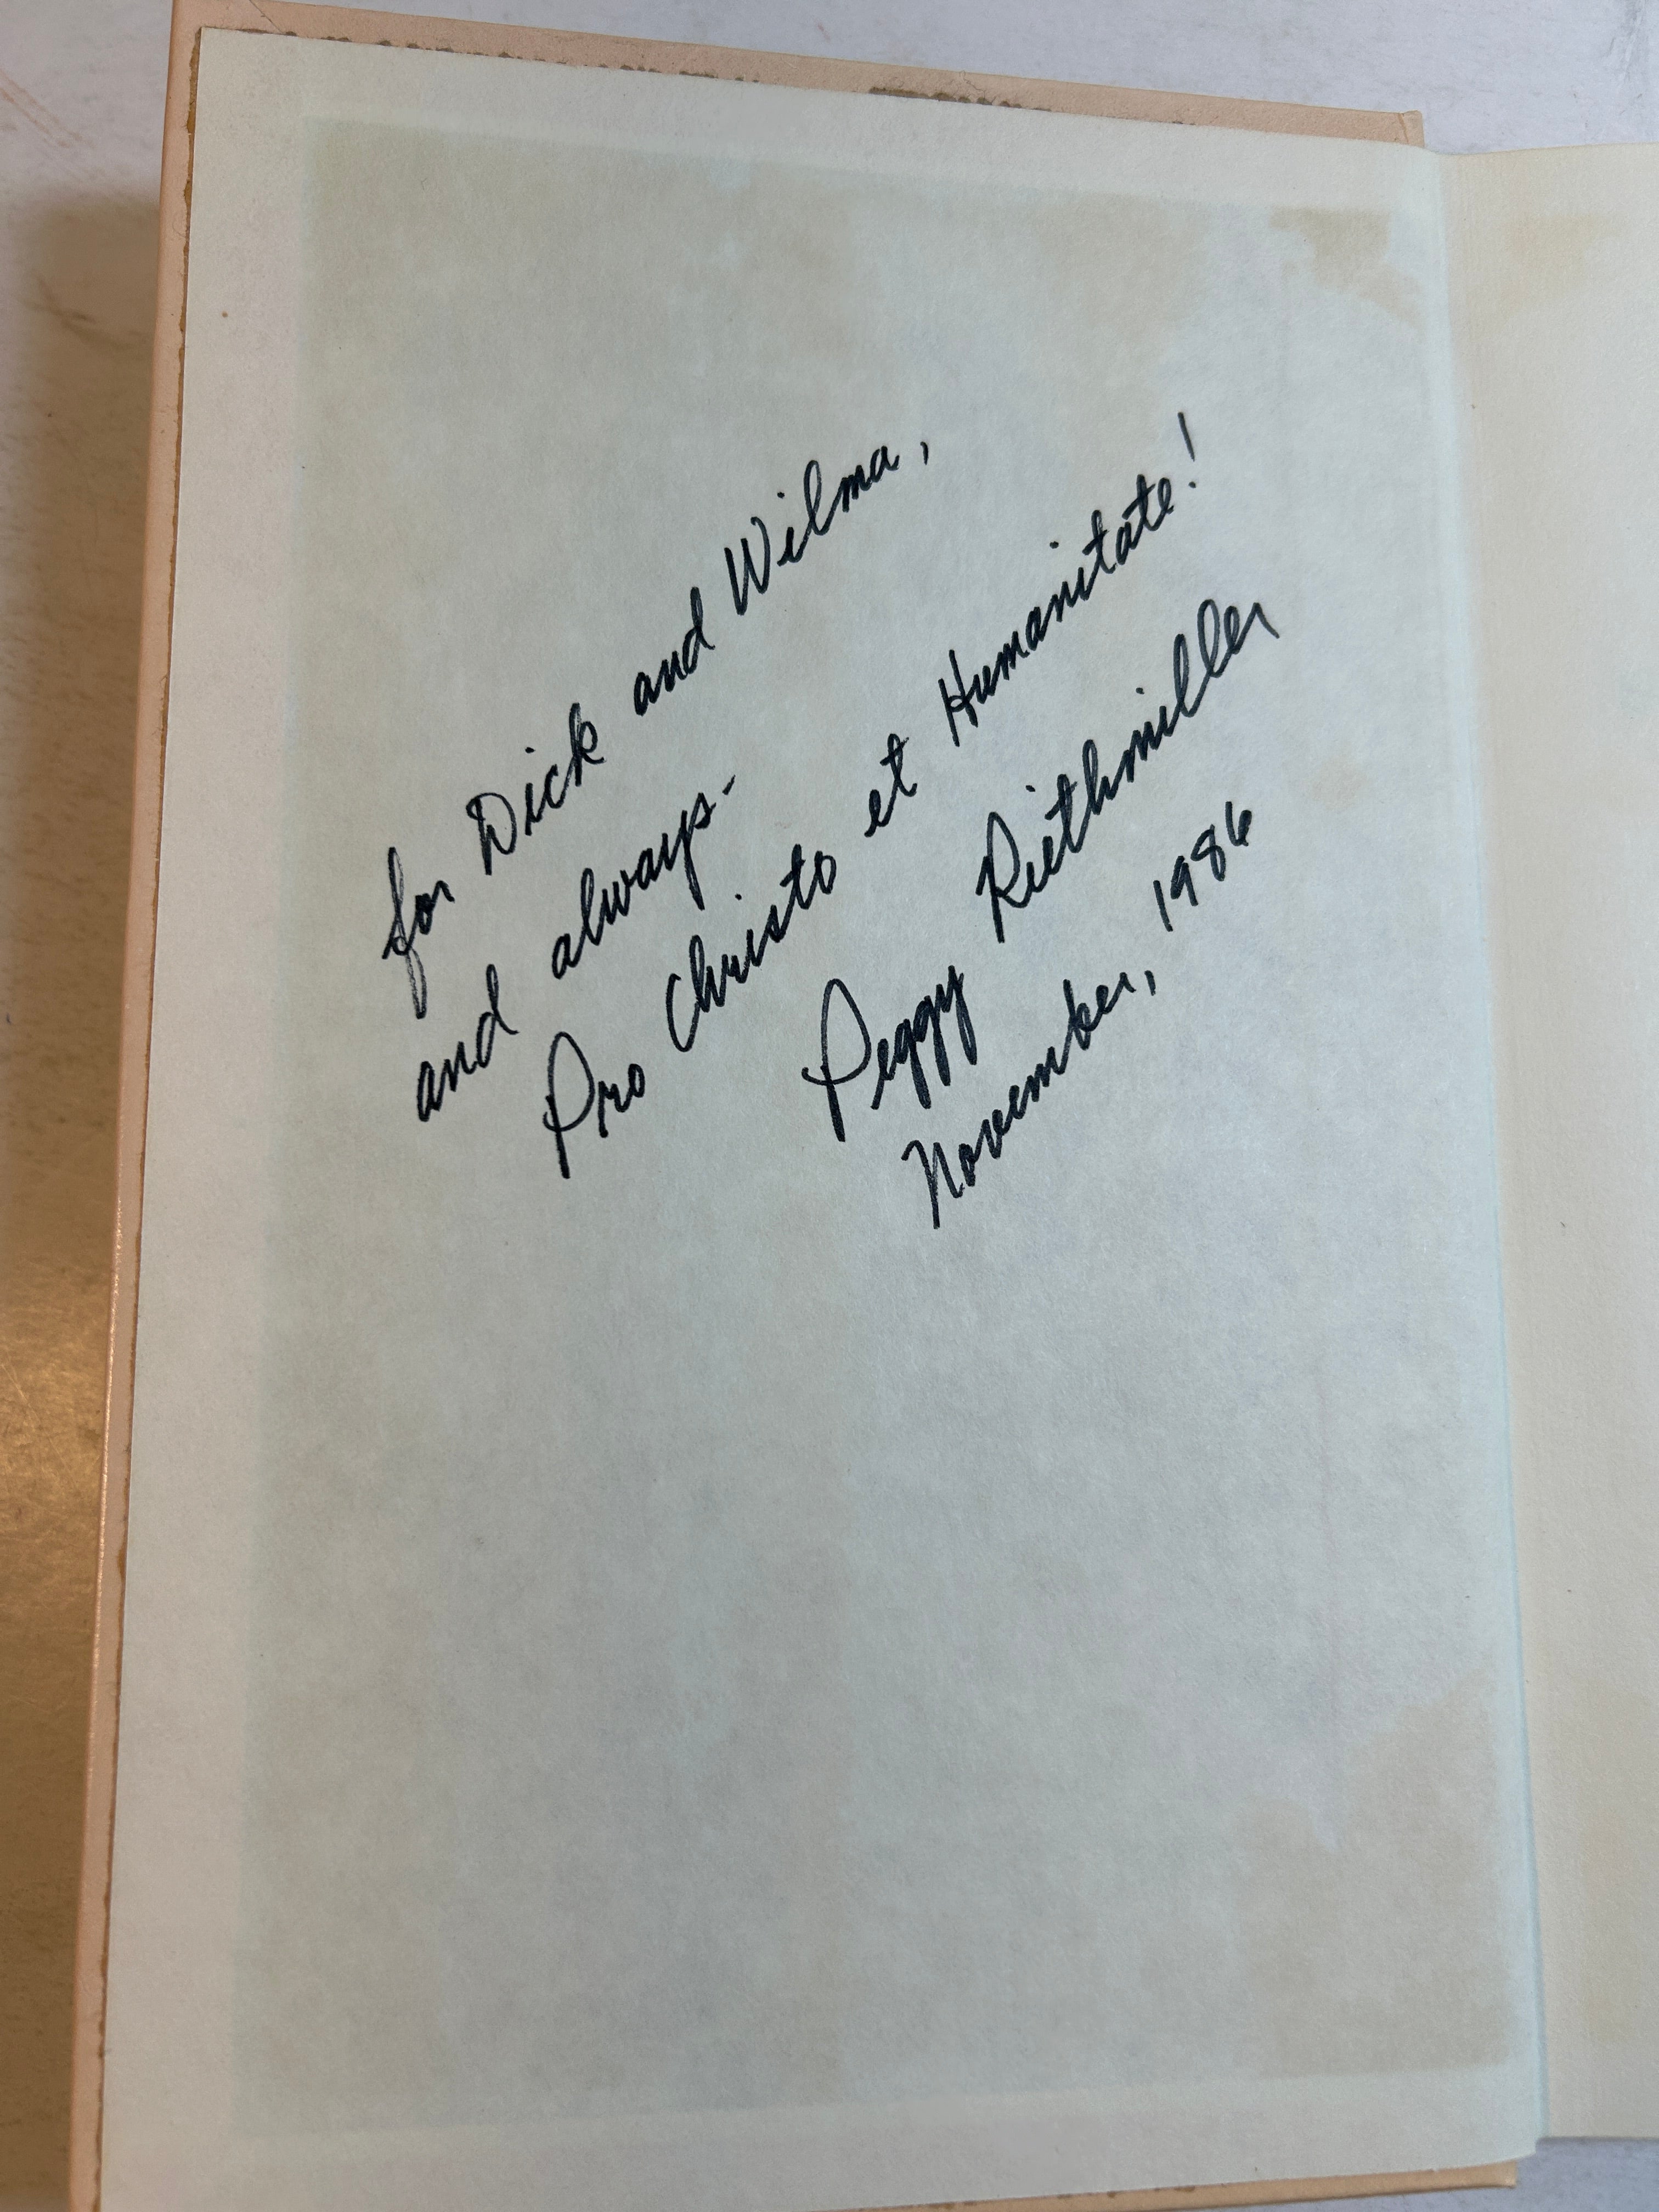 for Dick and Wilma,
and always-
Pro Christo et Humanitate!
Peggy Riethmiller
November, 1986